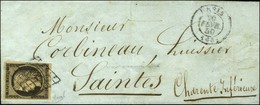 PARIS
FEVR
50
Monsieur
Corbineau, huissier
Saintes
Charente Inférieure